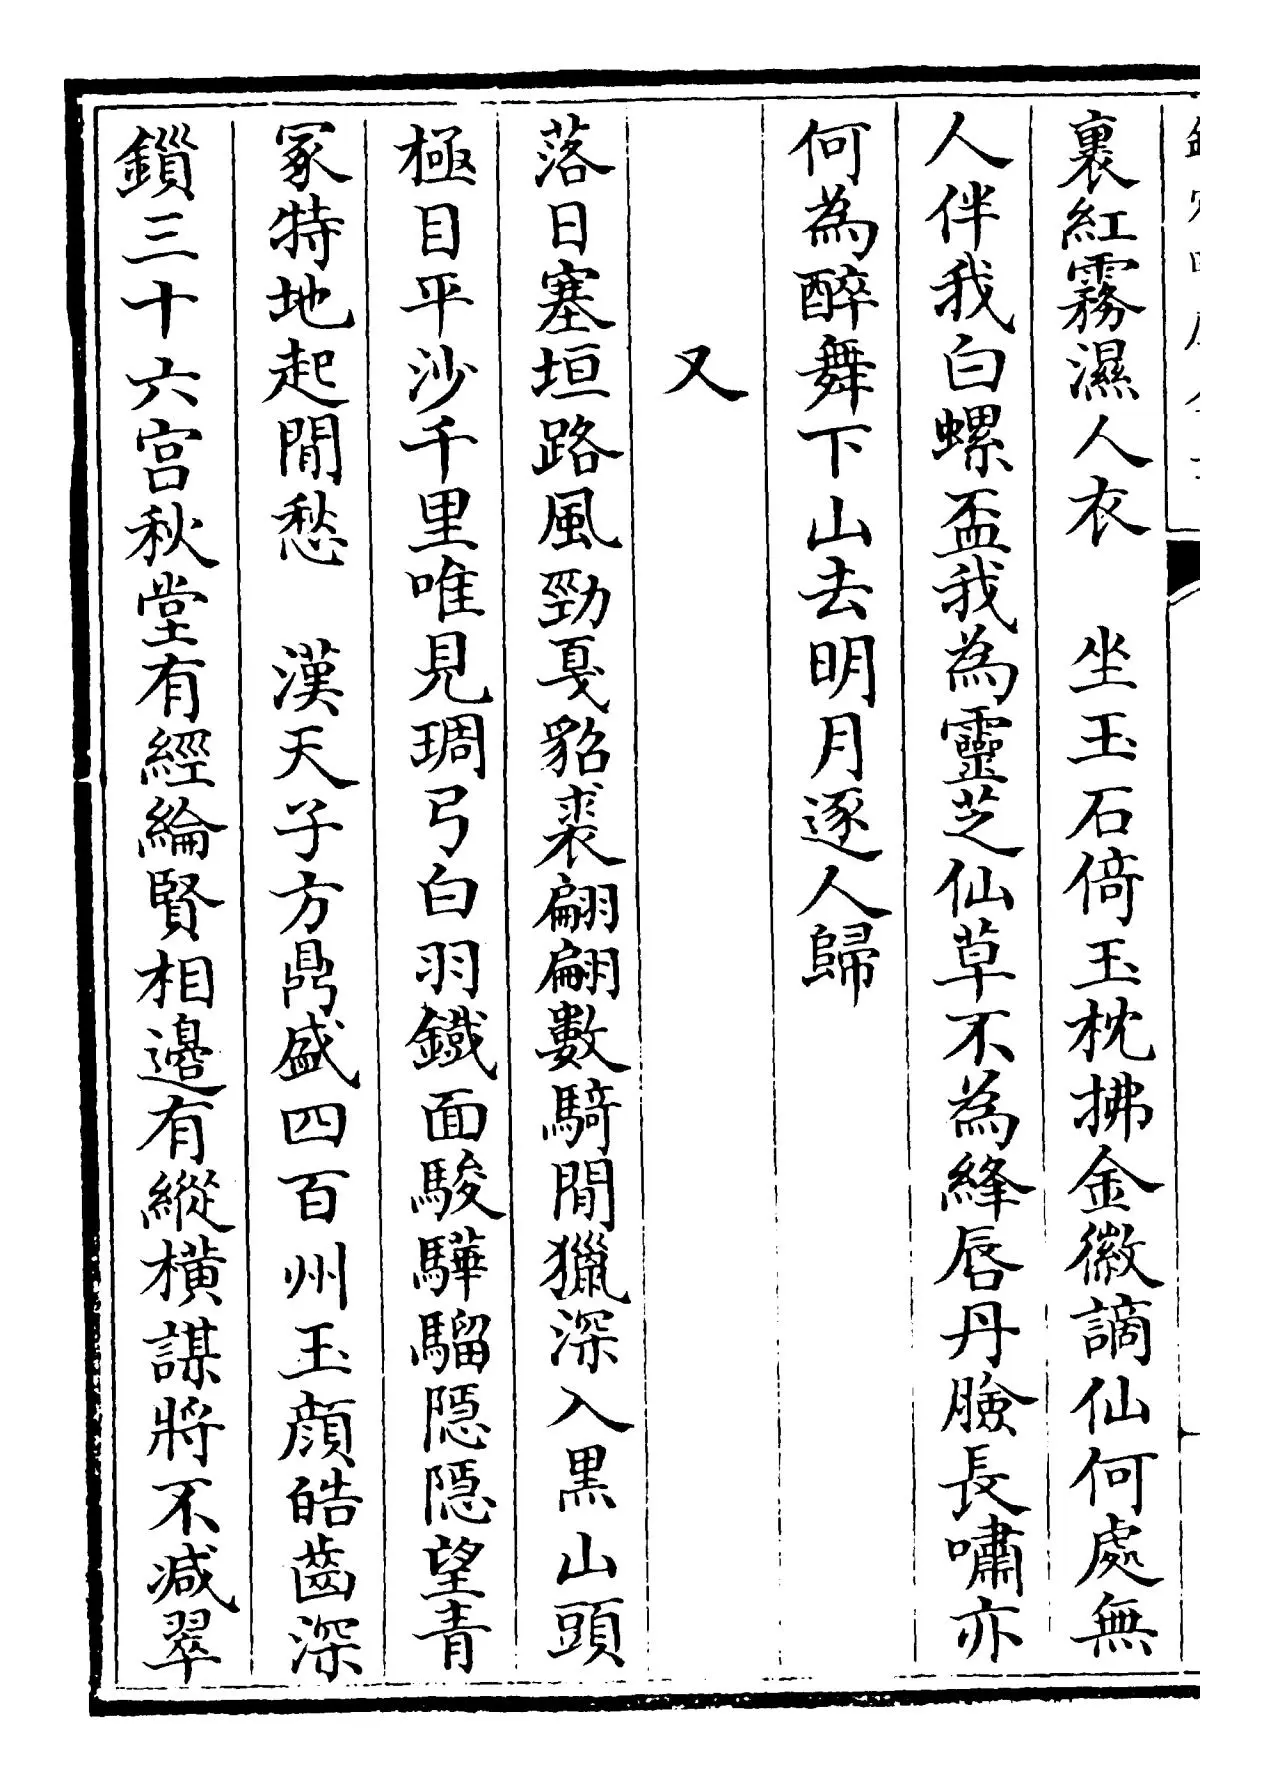 裏紅霧濕人衣　坐玉石倚玉枕拂金徽謫仙何處無
人伴我白螺盃我為靈芝仙草不為絳唇丹臉長嘯亦
何為醉舞下山去明月逐人歸
又
落日塞垣路風勁戛貂裘翩翩數騎閒獵深入黒山頭
極目平沙千里唯見琱弓白羽鐡面駿驊騮隠隠望青
冢特地起閒愁　漢天子方鼎盛四百州玉顔皓齒深
鎻三十六宫秋堂有經綸賢相邊有縱横謀將不減翠